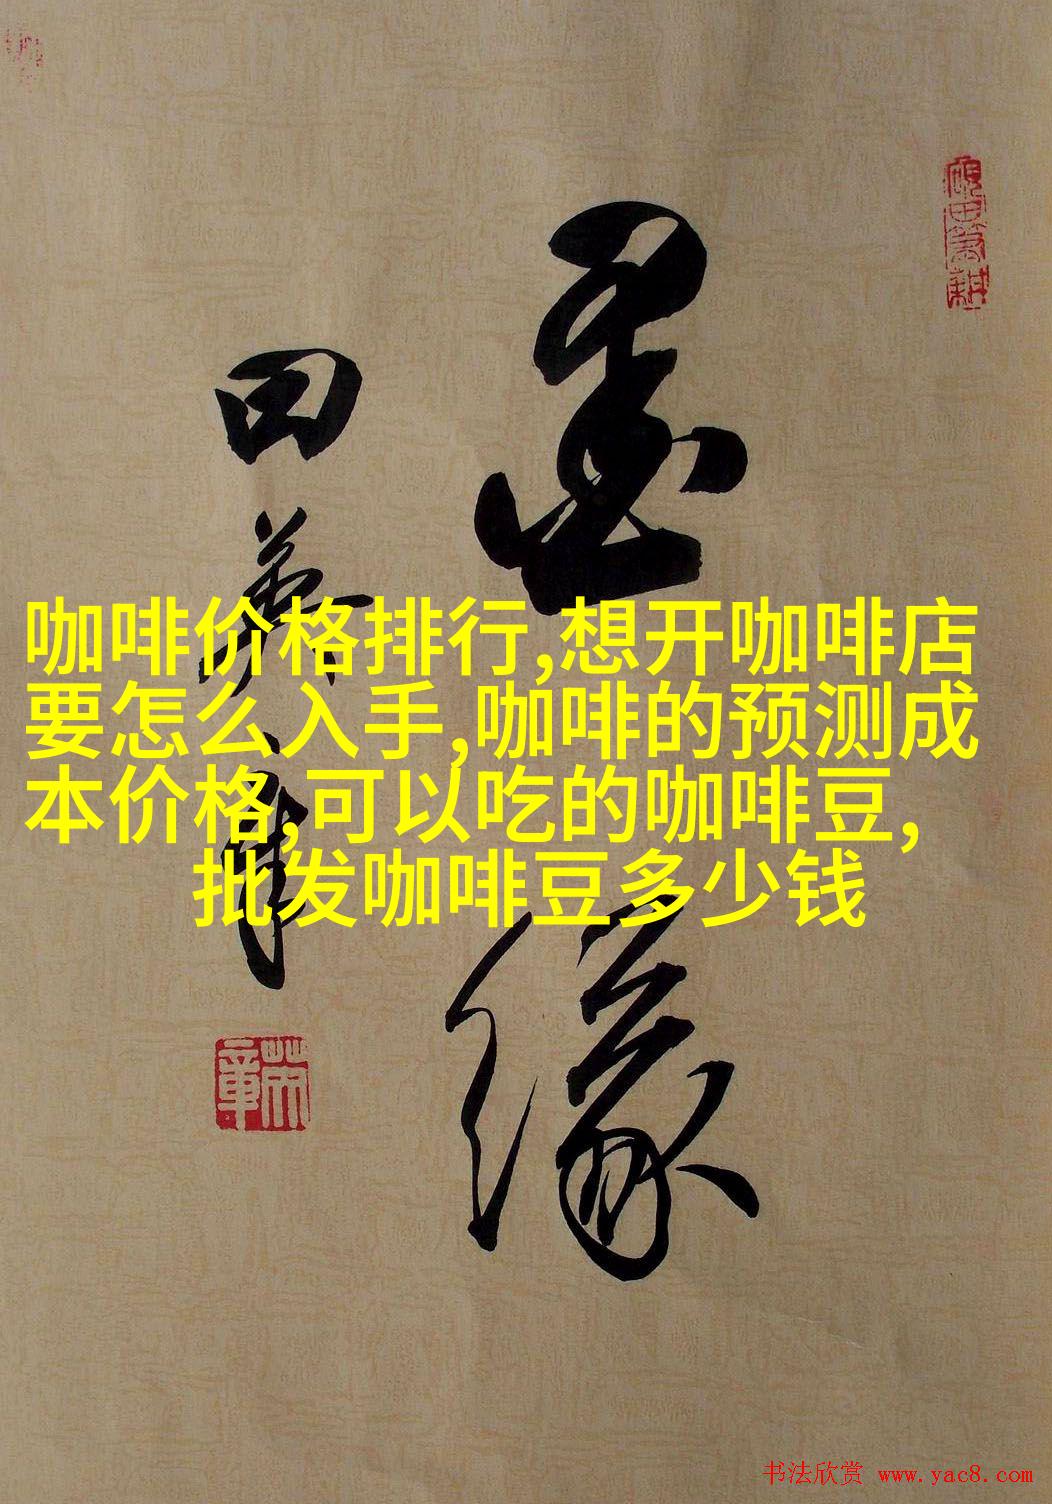 墨
缘
田英章
咖啡价格排行,想开咖啡店
要怎么入手,咖啡的预测成
本价格,可以吃的咖啡豆,
批发咖啡豆多少钱
书法欣赏 www.yac8.com